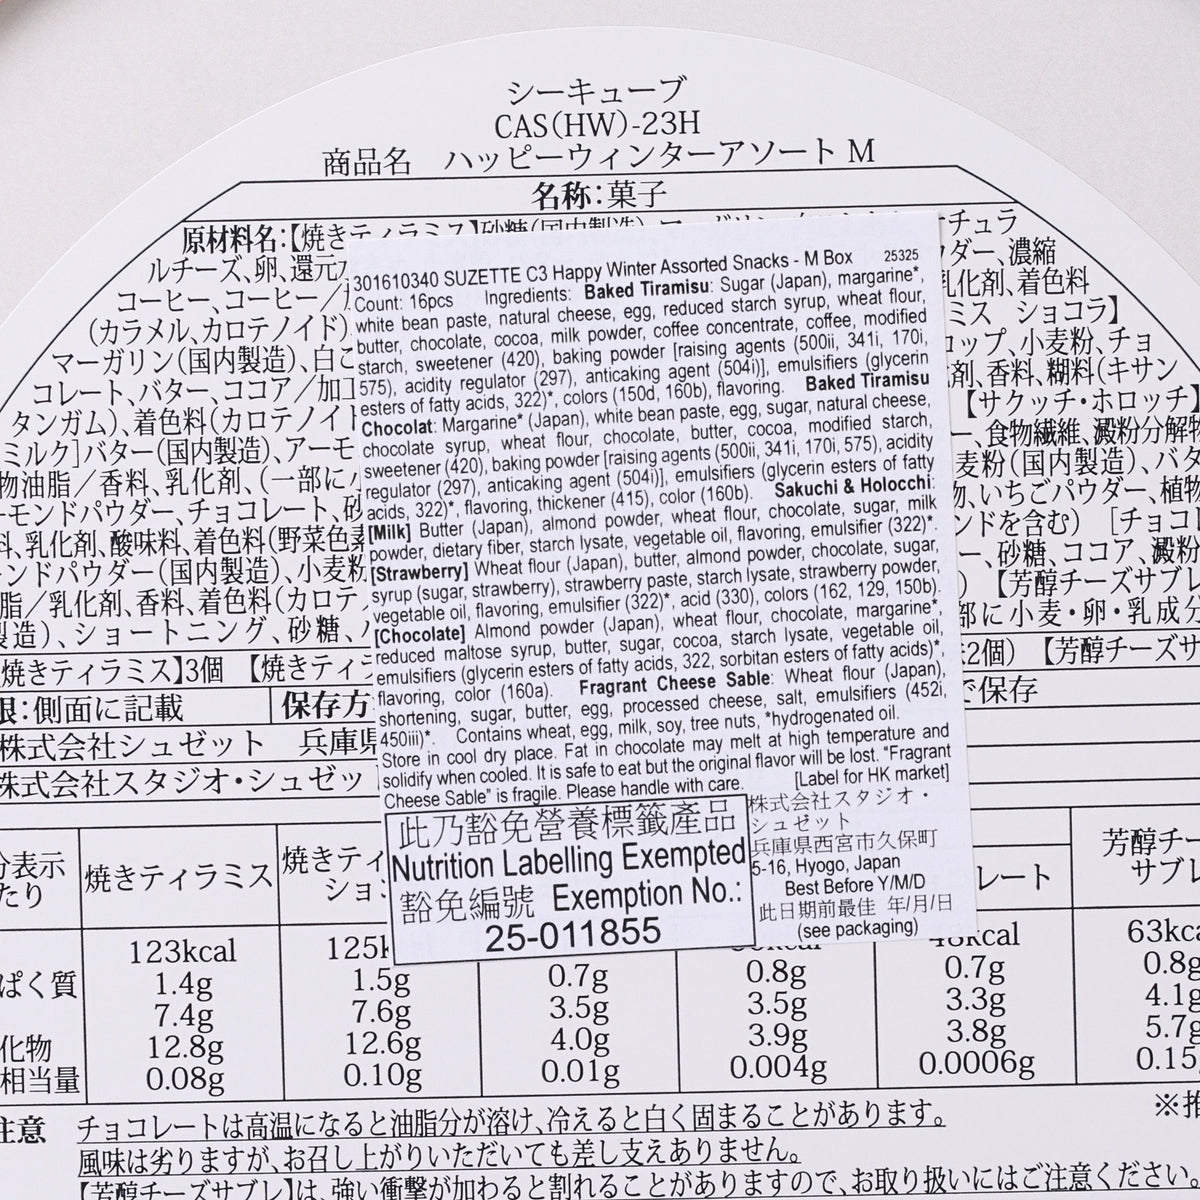 シーキューブ
CAS(HW)-23H
商品名 ハッピーウィンターアソート M
名称:菓子
原材料名:【焼きティラミス】砂糖(国内製造)、マーガリン
ナチュラ
ルチーズ、卵、還元
ダー、濃縮
コーヒー、コーヒー/
乳化剤、着色料
(カラメル、カロテノイド)
ミス ショコラ】
マーガリン(国内製造)、白こ
ロップ、小麦粉、チョ
コレート、バター、ココア/加工
剤、香料、糊料(キサン
タンガム)、着色料(カロテノイド
【サクッチ・ホロッチ】
ミルク]バター(国内製造)、アーモ
ー、食物繊維、澱粉分解物
物油脂/香料、乳化剤、(一部に
麦粉(国内製造)、バタ
ーモンドパウダー、チョコレート、砂
物、いちごパウダー、植物
料、乳化剤、酸味料、着色料(野菜色素
ンドを含む) [チョコ
ンドパウダー(国内製造)、小麦粉
ー、砂糖、ココア、澱粉
脂/乳化剤、香料、着色料(カロテ
) 【芳醇チーズサブレ
製造)、ショートニング、砂糖、
部に小麦・卵・乳成分
焼きティラミス】3個 【焼きティラ
2個) 【芳醇チーズサ
限:側面に記載 保存方
で保存
株式会社シュゼット 兵庫県
株式会社スタジオ・シュゼッ
301610340 SUZETTE C3 Happy Winter Assorted Snacks - M Box 25325
Count: 16pcs Ingredients: Baked Tiramisu: Sugar (Japan), margarine*,
white bean paste, natural cheese, egg, reduced starch syrup, wheat flour,
butter, chocolate, cocoa, milk powder, coffee concentrate, coffee, modified
starch, sweetener (420), baking powder [raising agents (500ii, 341i, 170i,
575), acidity regulator (297), anticaking agent (504i)], emulsifiers (glycerin
esters of fatty acids, 322)*, colors (150d, 160b), flavoring. Baked Tiramisu
Chocolat: Margarine* (Japan), white bean paste, egg, sugar, natural cheese,
chocolate syrup, wheat flour, chocolate, butter, cocoa, modified starch,
sweetener (420), baking powder [raising agents (500ii, 341i, 170i, 575), acidity
regulator (297), anticaking agent (504i)], emulsifiers (glycerin esters of fatty
acids, 322)*, flavoring, thickener (415), color (160b). Sakuchi & Holocchi:
[Milk] Butter (Japan), almond powder, wheat flour, chocolate, sugar, milk
powder, dietary fiber, starch lysate, vegetable oil, flavoring, emulsifier (322)*.
[Strawberry] Wheat flour (Japan), butter, almond powder, chocolate, sugar,
syrup (sugar, strawberry), strawberry paste, starch lysate, strawberry powder,
vegetable oil, flavoring, emulsifier (322)*, acid (330), colors (162, 129, 150b).
[Chocolate] Almond powder (Japan), wheat flour, chocolate, margarine*,
reduced maltose syrup, butter, sugar, cocoa, starch lysate, vegetable oil,
emulsifiers (glycerin esters of fatty acids, 322, sorbitan esters of fatty acids)*,
flavoring, color (160a). Fragrant Cheese Sable: Wheat flour (Japan),
shortening, sugar, butter, egg, processed cheese, salt, emulsifiers (452i,
450iii)*. Contains wheat, egg, milk, soy, tree nuts, *hydrogenated oil.
Store in cool dry place. Fat in chocolate may melt at high temperature and
solidify when cooled. It is safe to eat but the original flavor will be lost. "Fragrant
Cheese Sable" is fragile. Please handle with care. [Label for HK market]
此乃豁免營養標籤產品
Nutrition Labelling Exempted
豁免編號 Exemption No.:
25-011855
株式会社スタジオ・
シュゼット
兵庫県西宮市久保町
5-16, Hyogo, Japan
Best Before Y/M/D
此日期前最佳 年/月/日
(see packaging)
分表示 焼きティラミス 焼きティ レート 芳醇チーズ
たり ショ サブレ
123kcal 125k 48kcal 63kca
ぱく質 1.4g 1.5g 0.7g 0.8g 0.7g 0.8g
7.4g 7.6g 3.5g 3.5g 3.3g 4.1g
化物 12.8g 12.6g 4.0g 3.9g 3.8g 5.7g
相当量 0.08g 0.10g 0.01g 0.004g 0.0006g 0.15
※推
注意 チョコレートは高温になると油脂分が溶け、冷えると白く固まることがあります。
風味は劣りますが、お召し上がりいただいても差し支えありません。
【芳醇チーズサブレ】は、強い衝撃が加わると割れることがありますので、お取り扱いにはご注意ください。